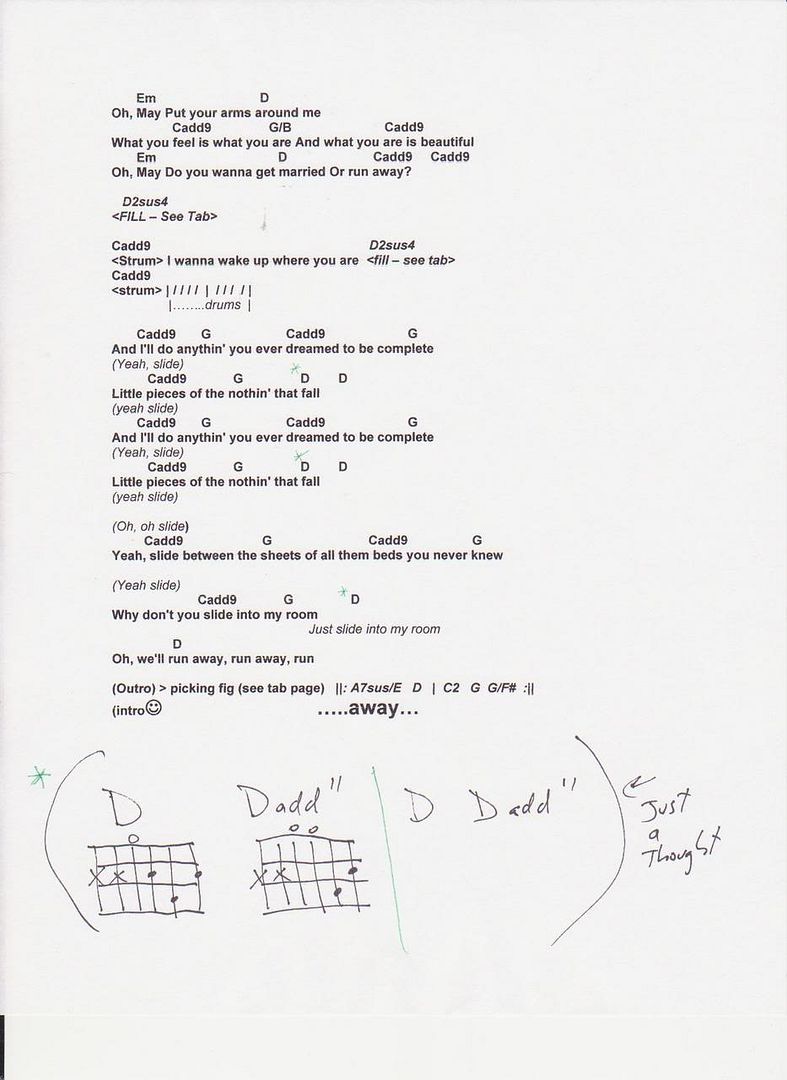 Em D
Oh, May Put your arms around me
Cadd9 G/B Cadd9
What you feel is what you are And what you are is beautiful
Em D Cadd9 Cadd9
Oh, May Do you wanna get married Or run away?
D2sus4
<FILL – See Tab>
Cadd9 D2sus4
<Strum> I wanna wake up where you are <fill – see tab>
Cadd9
<strum> | / / / / | / / / / |
|........drums |
Cadd9 G Cadd9 G
And I'll do anythin' you ever dreamed to be complete
(Yeah, slide) *
Cadd9 G D D
Little pieces of the nothin' that fall
(yeah slide)
Cadd9 G Cadd9 G
And I'll do anythin' you ever dreamed to be complete
(Yeah, slide) *
Cadd9 G D D
Little pieces of the nothin' that fall
(yeah slide)
(Oh, oh slide)
Cadd9 G Cadd9 G
Yeah, slide between the sheets of all them beds you never knew
(Yeah slide)
Cadd9 G * D
Why don't you slide into my room
Just slide into my room
D
Oh, we'll run away, run away, run
(Outro) > picking fig (see tab page) ||: A7sus/E D | C2 G G/F# :||
(intro☺ .....away...
* ( D Dadd11 | D Dadd11 )
Just
a
Thought
o o o
X X X X